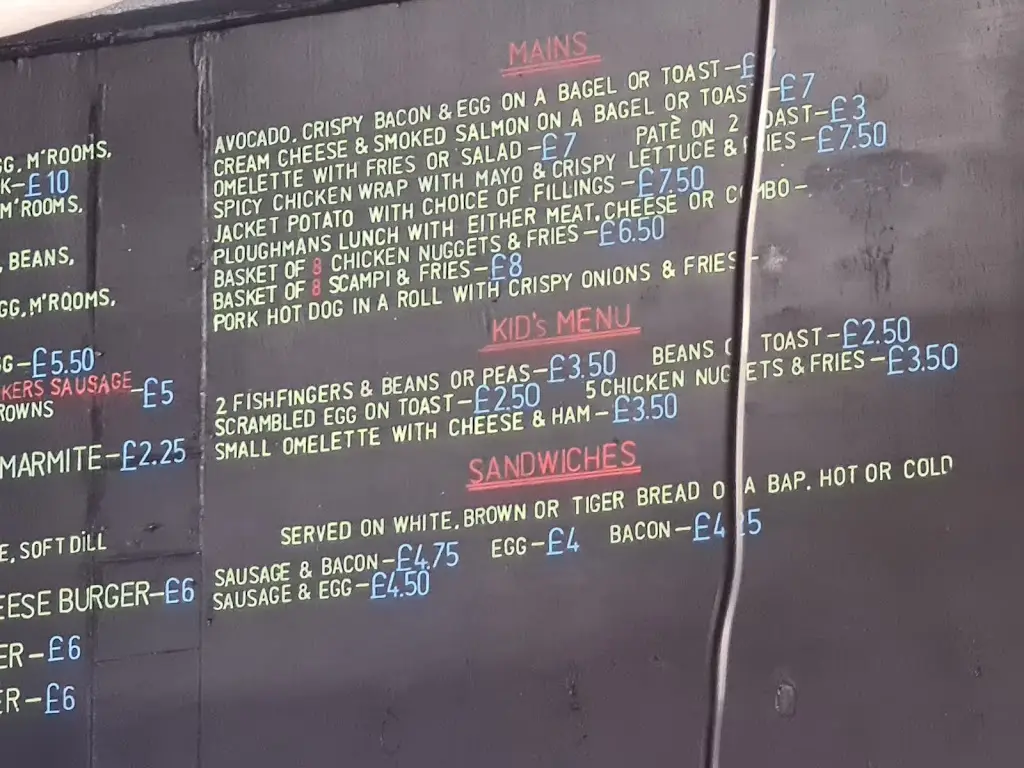 GG, M'ROOMS,
K-£10
M'ROOMS,
, BEANS,
GG, M'ROOMS,
G-£5.50
KERS SAUSAGE-£5
ROWNS
MARMITE-£2.25
E, SOFT DILL
EESE BURGER-£6
ER-£6
ER-£6
MAINS
AVOCADO, CRISPY BACON & EGG ON A BAGEL OR TOAST-£
CREAM CHEESE & SMOKED SALMON ON A BAGEL OR TOAS -£7
OMELETTE WITH FRIES OR SALAD-£7 PATÈ ON 2 OAST-£3
SPICY CHICKEN WRAP WITH MAYO & CRISPY LETTUCE & IES-£7.50
JACKET POTATO WITH CHOICE OF FILLINGS-£7.50
PLOUGHMANS LUNCH WITH EITHER MEAT, CHEESE OR CO BO-
BASKET OF 8 CHICKEN NUGGETS & FRIES-£6.50
BASKET OF 8 SCAMPI & FRIES-£8
PORK HOT DOG IN A ROLL WITH CRISPY ONIONS & FRIES-
KID's MENU
2 FISHFINGERS & BEANS OR PEAS-£3.50 BEANS TOAST-£2.50
SCRAMBLED EGG ON TOAST-£2.50 5 CHICKEN NUG ETS & FRIES-£3.50
SMALL OMELETTE WITH CHEESE & HAM-£3.50
SANDWICHES
SERVED ON WHITE, BROWN OR TIGER BREAD O A BAP, HOT OR COLD
SAUSAGE & BACON-£4.75 EGG-£4 BACON-£4. 5
SAUSAGE & EGG-£4.50